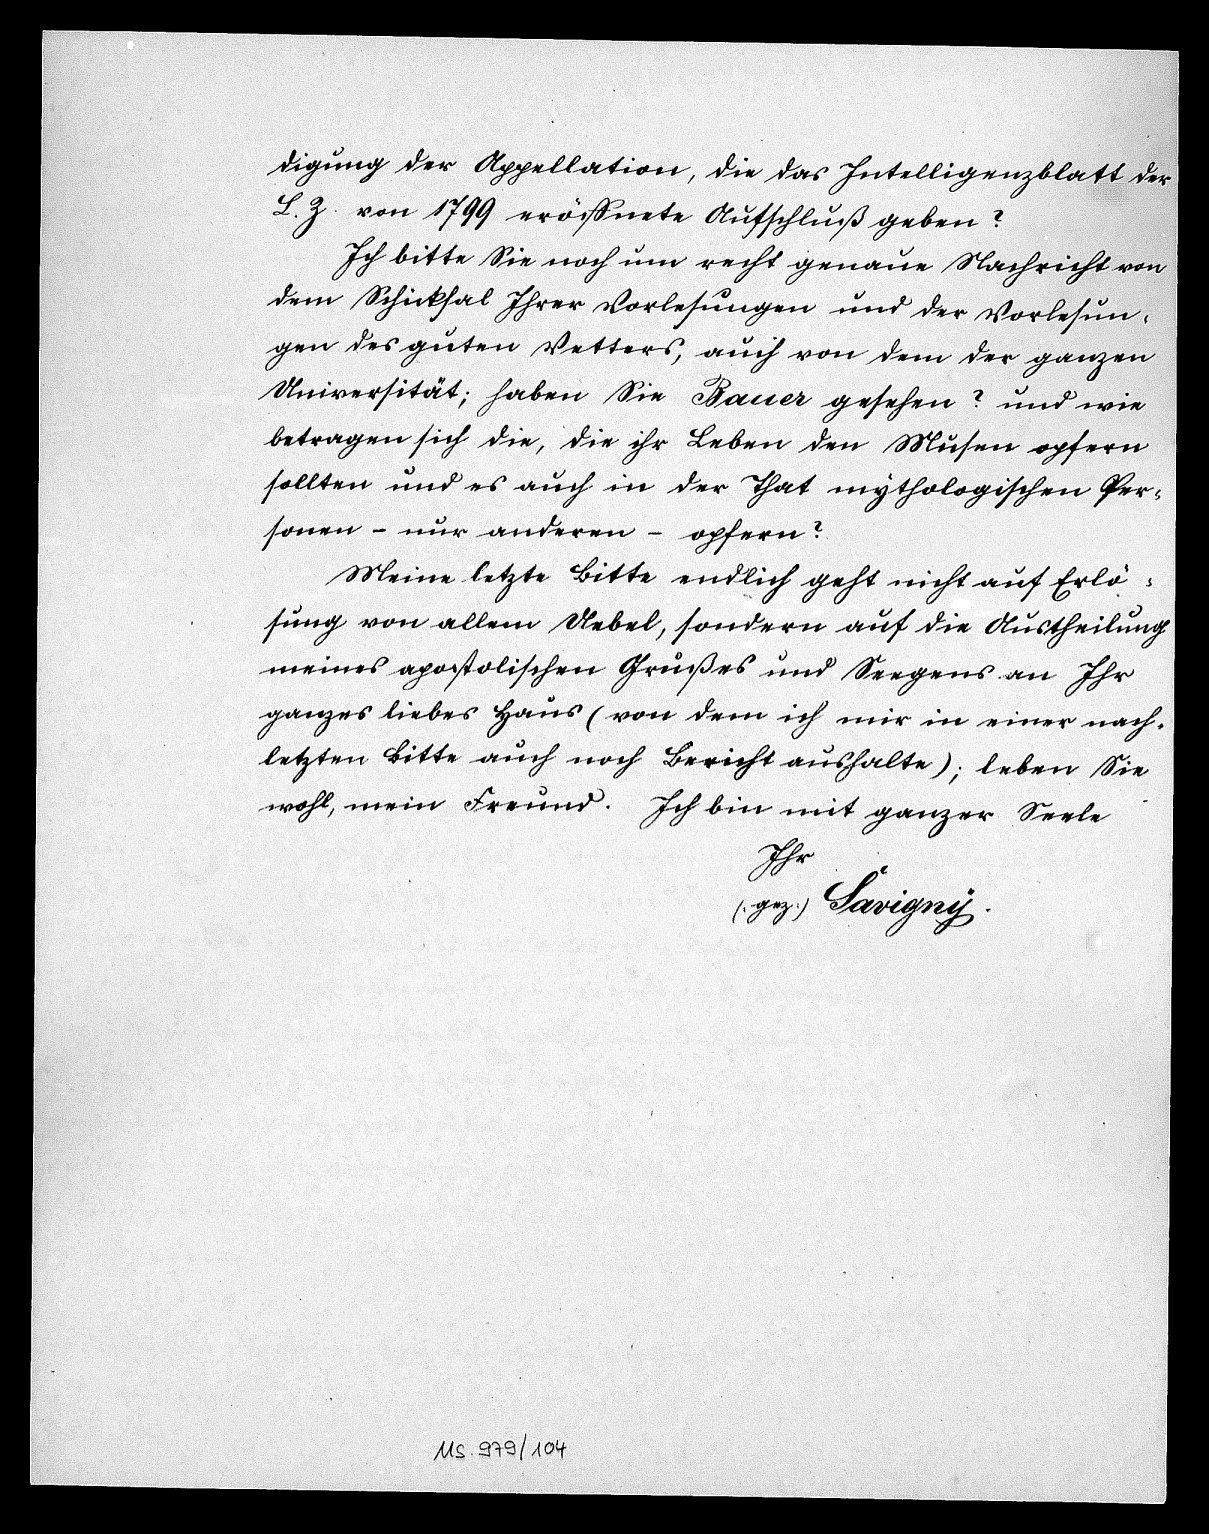 digung der Appellation, die das Intelligenzblatt der
L. Z. von 1799 eröffnete Aufschluß geben?
Ich bitte Sie noch um recht genaue Nachricht von
dem Schicksal Ihrer Vorlesungen und der Vorlesun-
gen des guten Vetters, auch von dem der ganzen
Universität; haben Sie Bauer gesehen? und wie
betragen sich die, die ihr Leben den Musen opfern
sollten und es auch in der That mythologischen Per-
sonen - nur anderen - opfern?
Meine letzte Bitte endlich geht nicht auf Erlö-
sung von allem Uebel, sondern auf die Austheilung
meines apostolischen Grußes und Seegens an Ihr
ganzes liebes Haus (von dem ich mir in einer nach-
letzten Bitte auch noch Bericht aushalte); leben Sie
wohl, mein Freund. Ich bin mit ganzer Seele
Ihr
(gez.) Savigny.
Ms. 979/104